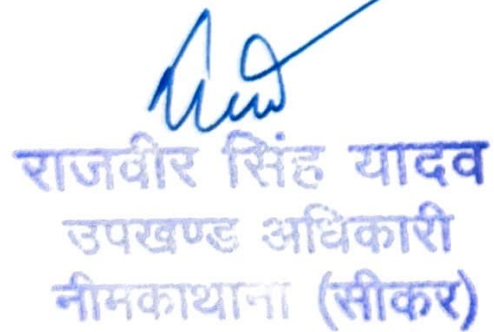 राजवीर सिंह यादव
उपखण्ड अधिकारी
नीमकाथाना (सीकर)